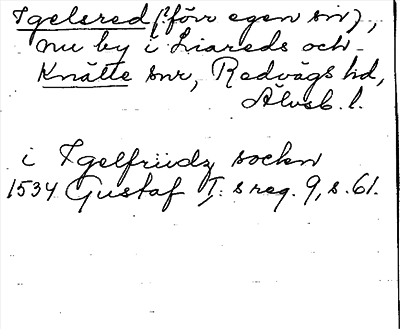 Igelsred (?förr egen sn),
nu by i Liareds och
Knätte snr, Redvägs hd,
Älvsb. l.
i Igelfriidz sockn
1534 Gustaf I:s reg. 9, s. 61.